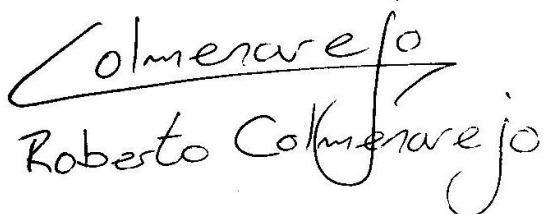 Colmenarejo
Roberto Colmenarejo